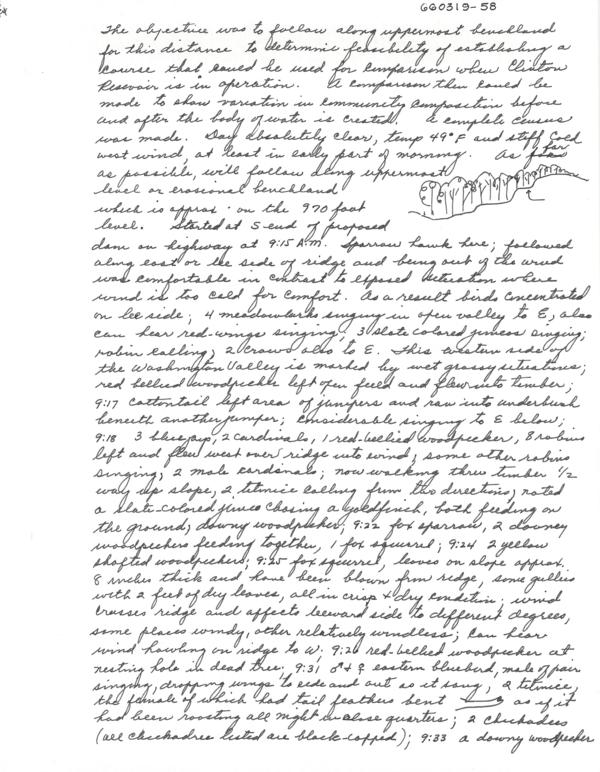 660319-58
The objective was to follow along uppermost benchland
for this distance to determine feasibility of establishing a
course that could be used for comparison when Clinton
Resevoir is in operation. A comparison then could be
made to show variation in community composition before
and after the body of water is created. A complete census
was made. Day absolutely clear, temp 49° F and stiff cold
west wind, at least in early part of morning. As far
as possible, will follow along uppermost
level or erosional benchland
which is approx. on the 970 foot
level. Started at S end of proposed
dam on highway at 9:15 A.M. Sparrow hawk here; followed
along east or lee side of ridge and being out of the wind
was comfortable in contrast to exposed situation where
wind is too cold for comfort. As a result birds concentrated
on lee side; 4 meadowlarks singing in open valley to E, also
can hear red-wings singing; 3 slate colored juncos singing;
robin calling; 2 crows also to E. This western side of
the Washington Valley is marked by wet grassy situations;
red bellied woodpecker left open field and flew into timber;
9:17 cottontail left area of junipers and ran into underbush
beneath another juniper; considerable singing to E below;
9:18 3 blue jay, 2 cardinals, 1 red-bellied woodpecker, 8 robins
left and flew west over ridge into wind, some other robins
singing, 2 male cardinals; now walking thru timber 1/2
way up slope, 2 titmice calling from two directions; noted
a slate-colored junco chasing a goldfinch, both feeding on
the ground; downy woodpecker; 9:22 fox sparrow, 2 downey
woodpeckers feeding together, 1 fox squirrel; 9:24 2 yellow
shafted woodpeckers; 9:25 fox squirrel, leaves on slope approx.
8 inches thick and have been blown from ridge, some gullies
with 2 feet of dry leaves, all in crisp + dry condition; wind
crosses ridge and affects leeward side to different degrees,
some places windy, other relatively windless; can hear
wind howling on ridge to W. 9:26 red-bellied woodpecker at
nesting hole in dead tree. 9:31 ♂ + ♀ eastern bluebird, male of pair
singing, dropping wings to side and out as it sang; 2 titmice,
the female of which had tail feathers bent as if it
had been roosting all night in close quarters; 2 chickadees
(all chickadees listed are black-capped); 9:33 a downy woodpecker